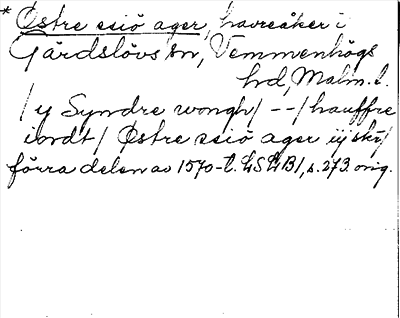 * Østre esiö ager, havreåker i
Gärdslövs sn, Vemmenhögs
hd, Malm. l.
/ y Syndre wongh / -- / hauffre
iordt / Østre esiö ager iij skr /
förra delen av 1570-t. LSLB1, s. 273. orig.